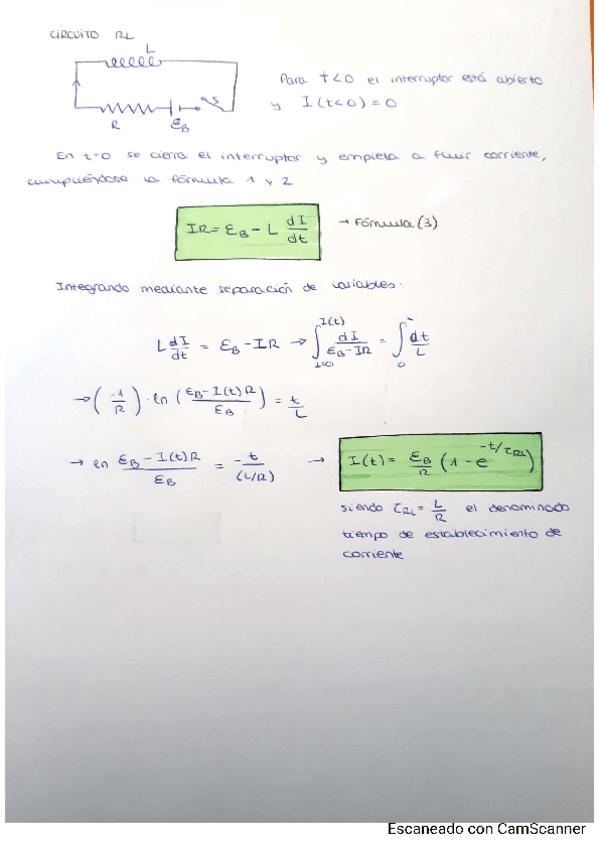 CIRCUITO RL
L
R
ε_B
Para t<0 el interruptor está abierto
y I(t<0)=0
En t=0 se cierra el interruptor y empieza a fluir corriente,
cumpliéndose la fórmula 1 y 2
IR = ε_B - L dI/dt → Fórmula (3)
Integrando mediante separación de variables:
L dI/dt = ε_B - IR → ∫_{I=0}^{I(t)} dI/(ε_B - IR) = ∫_0 dt/L
→ (-1/R) · ln ((ε_B - I(t)R)/ε_B) = t/L
→ ln (ε_B - I(t)R)/ε_B = -t/(L/R) → I(t) = ε_B/R (1 - e^{-t/τ_RL})
siendo τ_RL = L/R el denominado
tiempo de establecimiento de
corriente
Escaneado con CamScanner